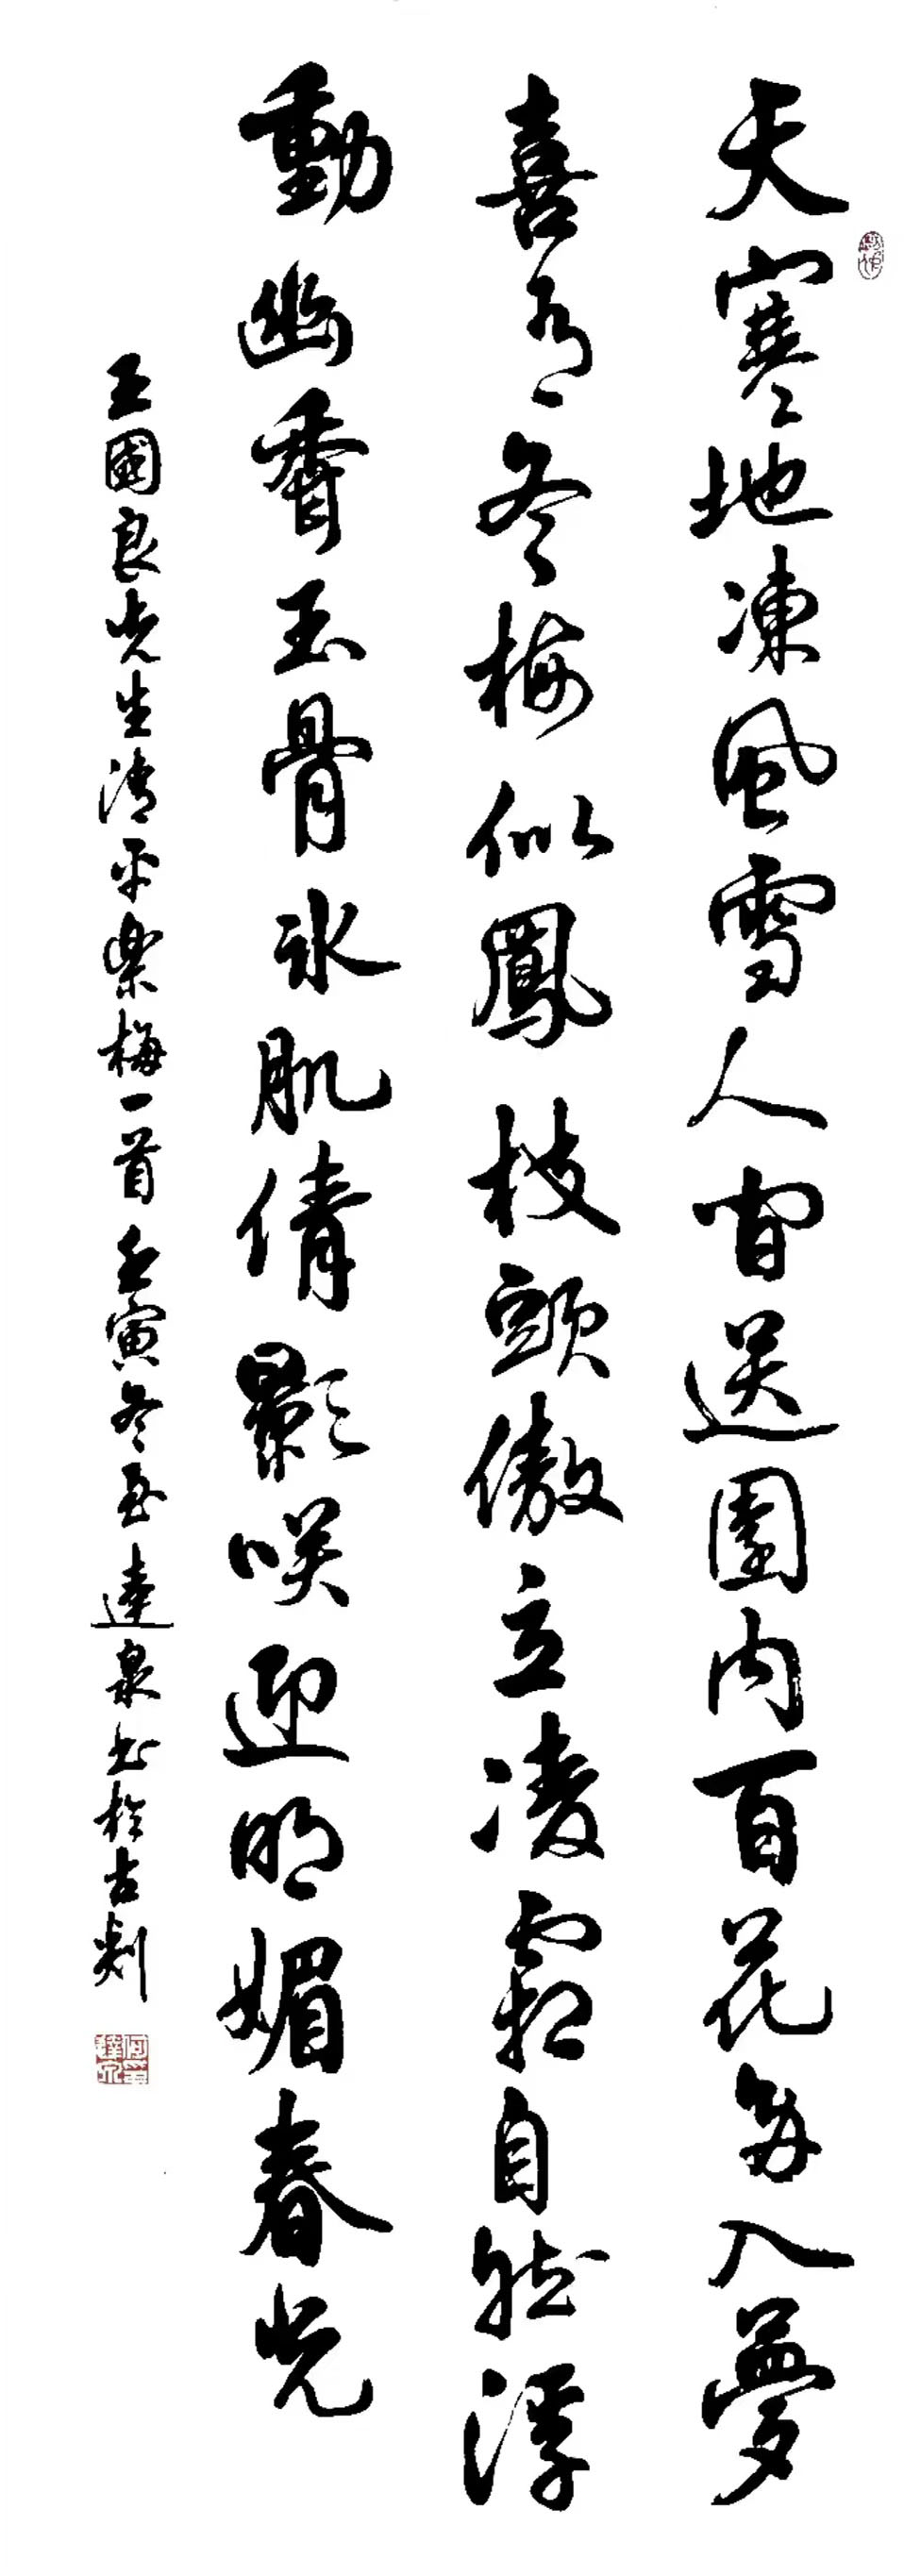 天寒地凍風雪人间送園内百花多入夢
喜有冬梅似鳳枝頭傲立凌霜自然浮
動幽香玉骨冰肌倩影咲迎明媚春光
王國良先生清平樂梅一首壬寅冬至達泉书於古剡